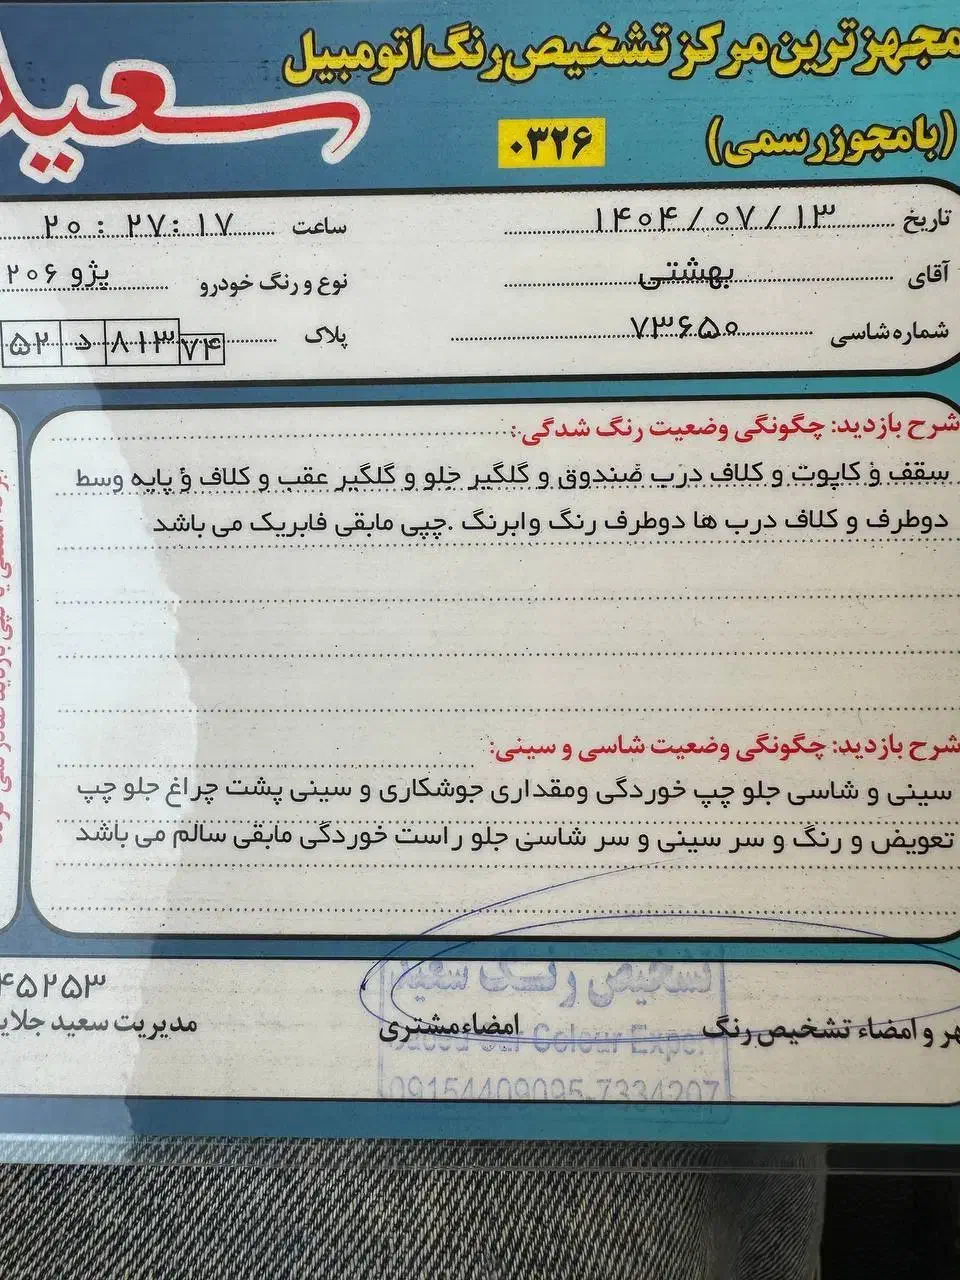 مجهزترین مرکز تشخیص رنگ اتومبیل
سعید
(با مجوز رسمی)
۰۳۲۶
تاریخ ۱۴۰۴/۰۷/۱۳
ساعت ۲۰:۲۷:۱۷
آقای بهشتی
نوع و رنگ خودرو پژو ۲۰۶
شماره شاسی ۷۳۶۵۰
پلاک ۵۲ د ۸۱۳ ۷۴
شرح بازدید: چگونگی وضعیت رنگ شدگی:
سقف و کاپوت و کلاف درب صندوق و گلگیر جلو و گلگیر عقب و کلاف و پایه وسط
دوطرف و کلاف درب ها دوطرف رنگ وابرنگ .چپی مابقی فابریک می باشد
شرح بازدید: چگونگی وضعیت شاسی و سینی:
سینی و شاسی جلو چپ خوردگی ومقداری جوشکاری و سینی پشت چراغ جلو چپ
تعویض و رنگ و سر سینی و سر شاسی جلو راست خوردگی مابقی سالم می باشد
تشخیص رنگ سعید
۴۵۲۵۳
و امضاء تشخیص رنگ
امضاء مشتری
مدیریت سعید
Car Colour Exper
09154409095-7334207